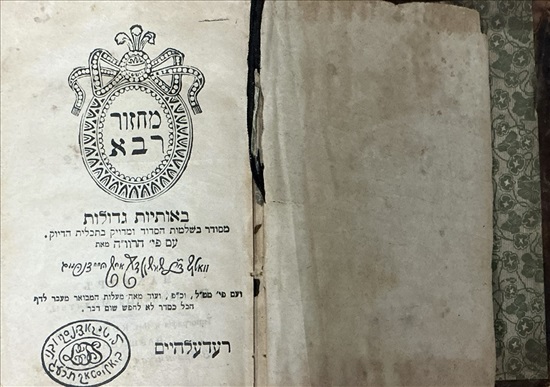 מחזור
רבא
באותיות גדולות
מסודר בשלמות הסדור ומדויק בתכלית הדיוק.
עם פי׳ הרוו״ה מאת
וואלף
ועם פי׳ מפ״ל, וכ״פ, ועוד מאה מעלות המבואר מעבר לדף
הכל כסדר לא לחפש שום דבר.
רעדעלהיים